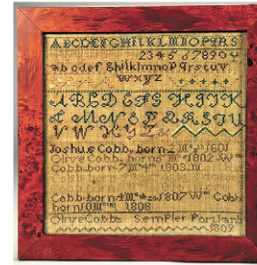 ABCDEFGHILKLMNOPQRS
2345 6 7890
abcdef ghilklmnopqrstuv
wxyz
ABCD EFG HIJK
L M N O P Q R S T U
V W X Y Z &
Joshua Cobb born 2 1801
Olive Cobb born 5 1802 Wm
Cobb born 7 1803
Cobb born 4 1807 Wm Cobb
born 10 1808
Olive Cobbs Sempler Portland
1809